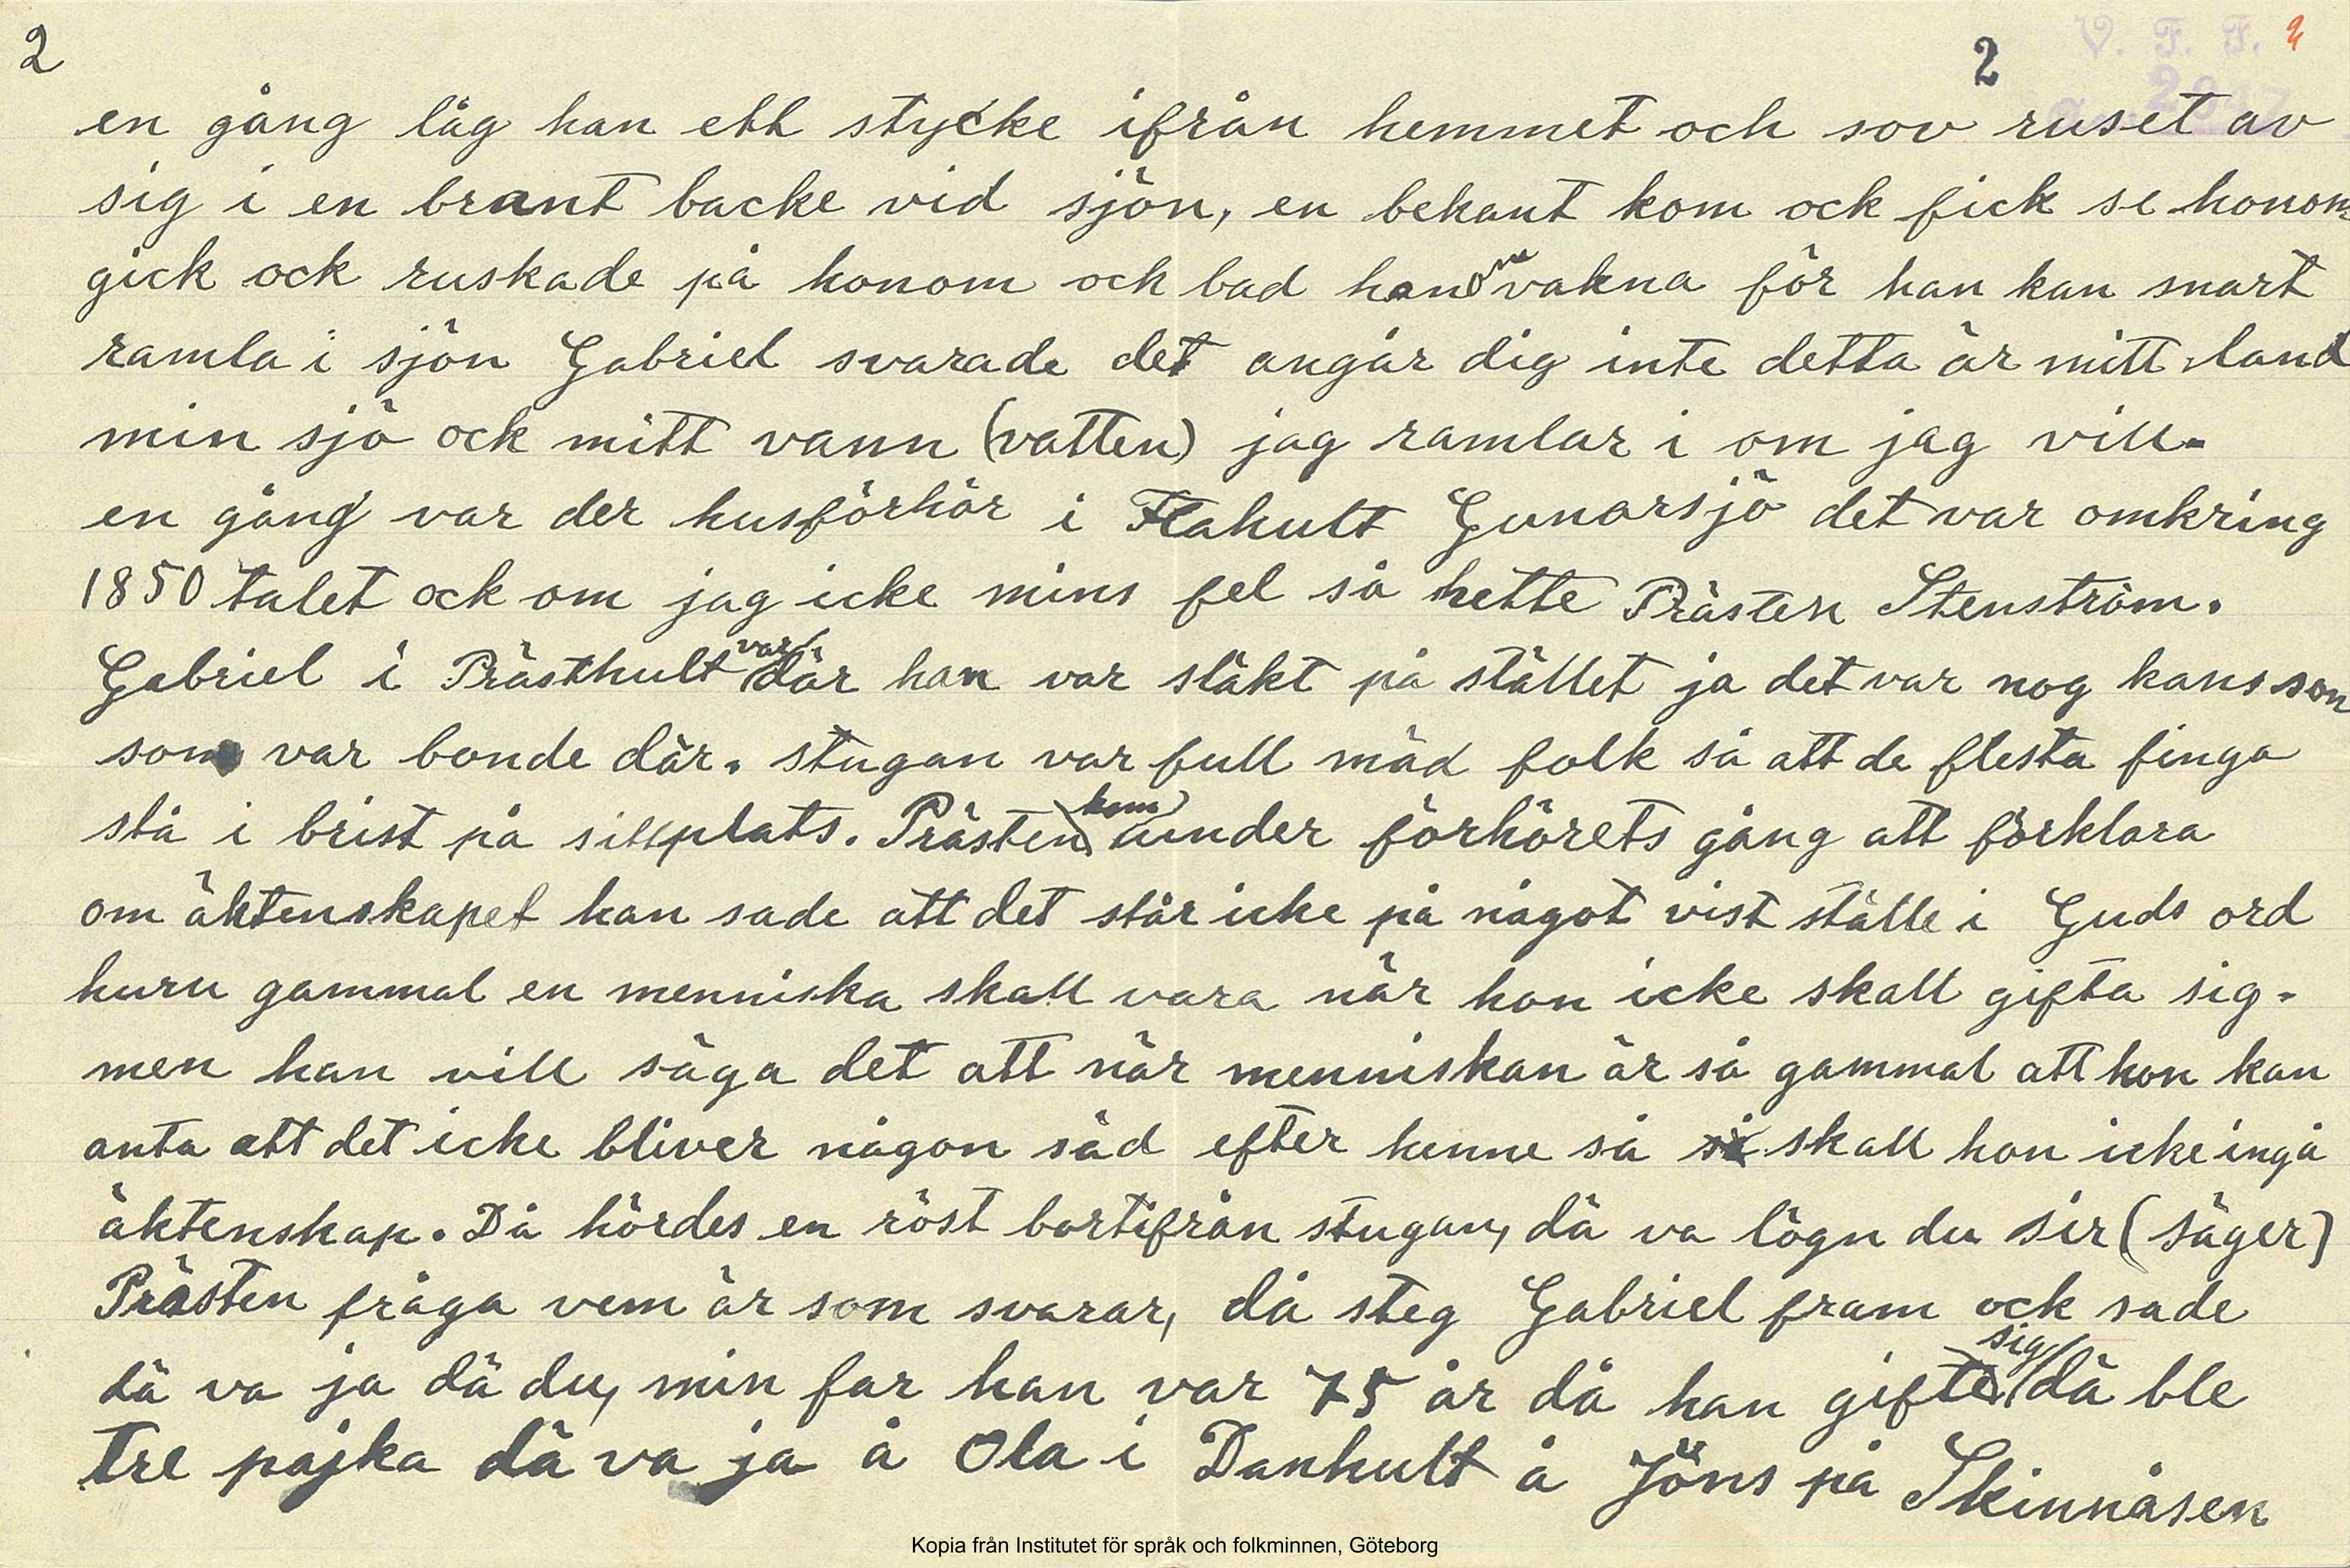 2
2
V. F. F. 2
en gång låg han ett stycke ifrån hemmet och sov ruset av
sig i en brant backe vid sjön, en bekant kom ock fick se honom
gick ock ruskade på honom och bad honom vakna för han kan snart
ramla i sjön Gabriel svarade det angår dig inte detta är mitt land
min sjö ock mitt vann (vatten) jag ramlar i om jag vill.
en gång var der husförhör i Flahult Gunarsjö det var omkring
1850 talet ock om jag icke mins fel så hette Prästen Stenström.
Gabriel i Prästhult var där han var släkt på stället ja det var nog hans son
som var bonde där. stugan var full mäd folk så att de flesta finga
stå i brist på sittplats. Prästen kom under förhörets gång att förklara
om äktenskapet han sade att det står icke på något vist ställe i Guds ord
huru gammal en menniska skall vara när hon icke skall gifta sig.
men han vill säga det att när menniskan är så gammal att hon kan
anta att det icke bliver någon säd efter henne så skall hon icke ingå
äktenskap. Då hördes en röst bortifrån stugan, dä va lögn du sir (säger)
Prästen fråga vem är som svarar, då steg Gabriel fram ock sade
dä va ja dä du, min far han var 75 år då han gifte sig dä ble
tre pajka dä va ja å Ola i Danhult å Jöns på Skinnåsen
Kopia från Institutet för språk och folkminnen, Göteborg